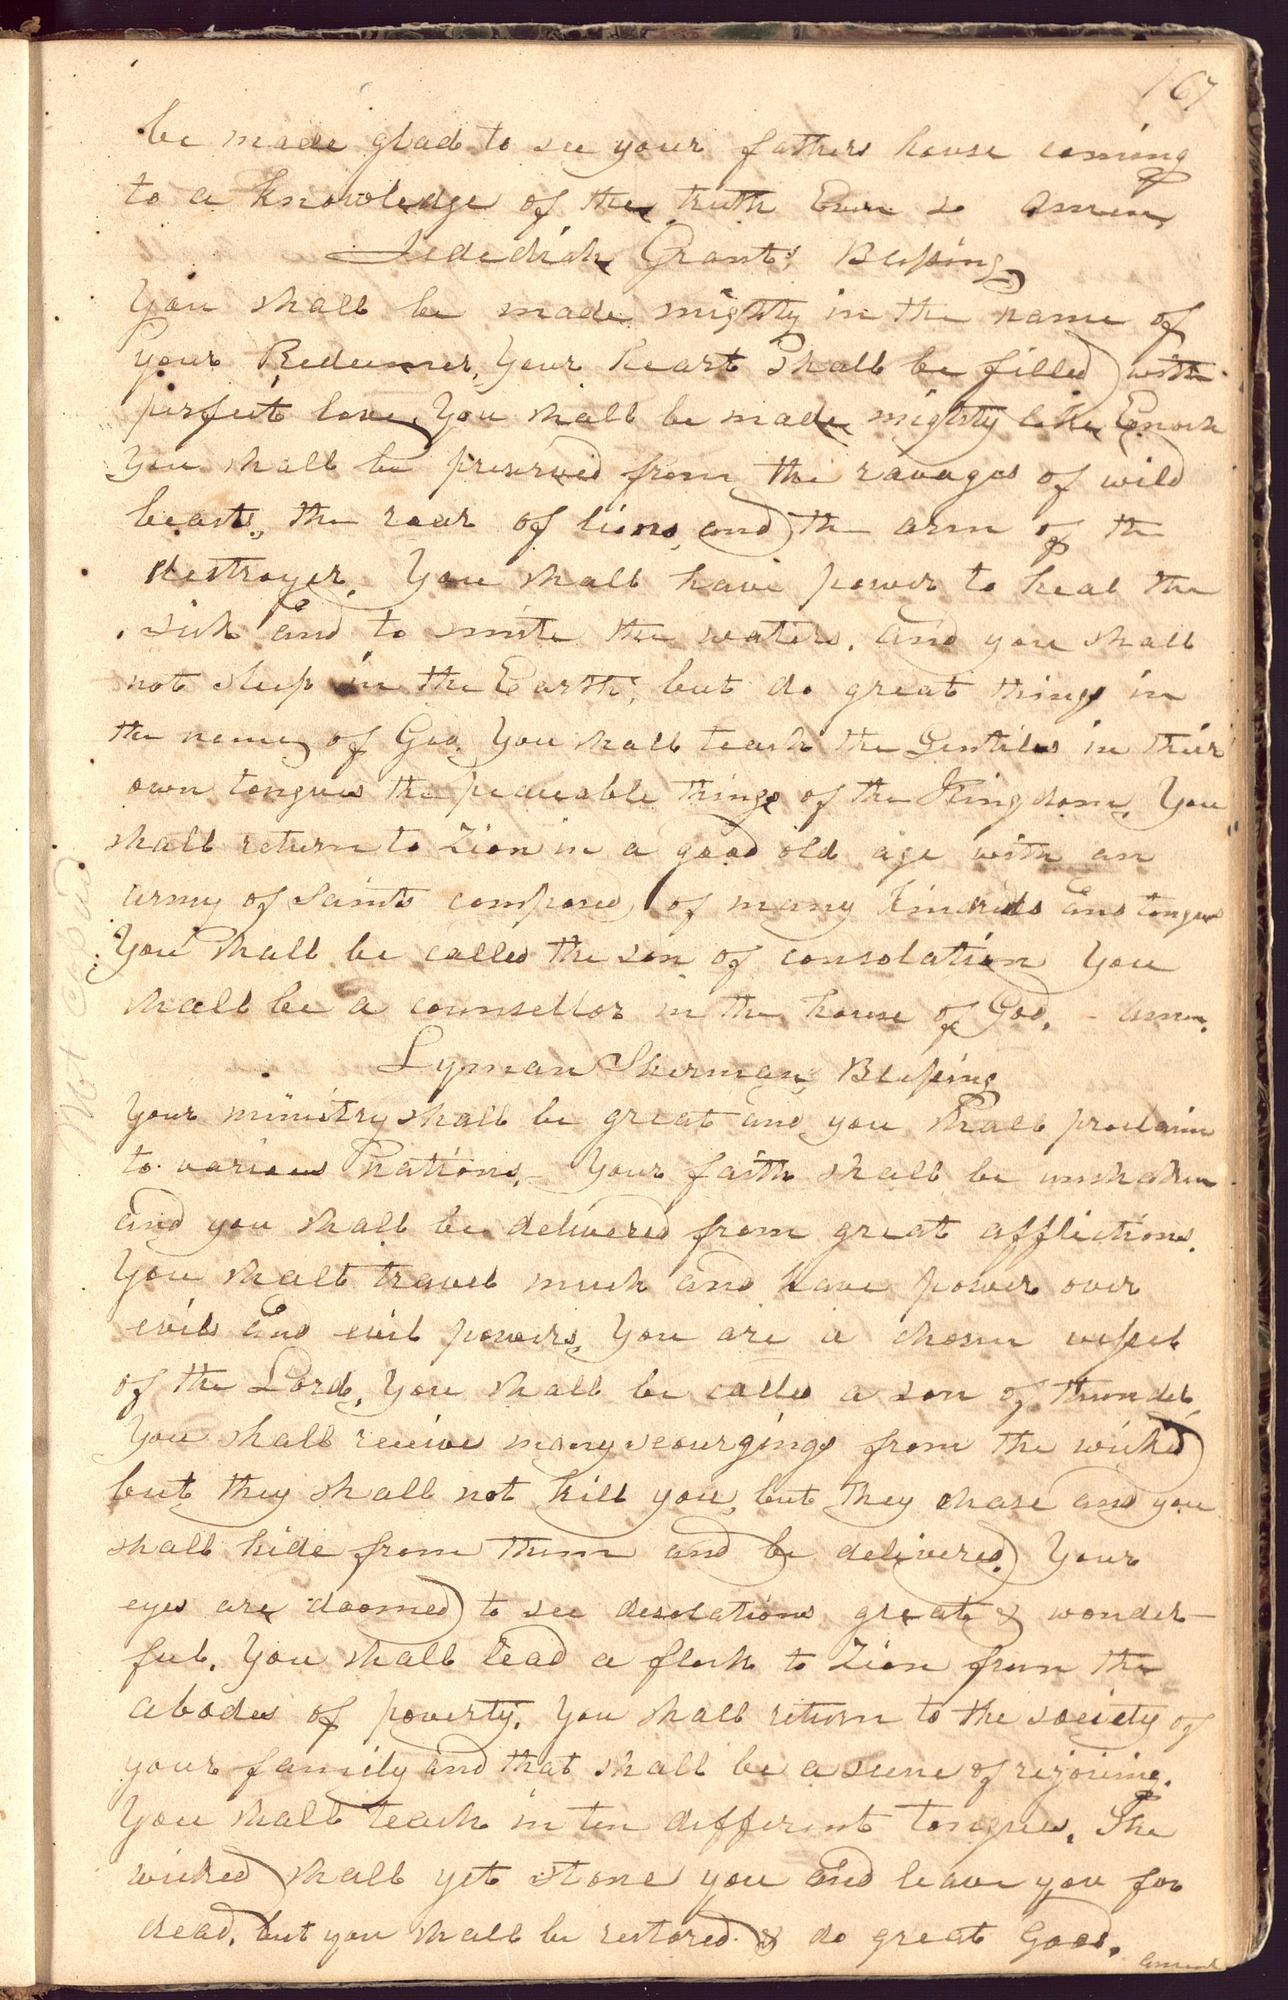 167
be made glad to see your fathers house coming
to a knowledge of the truth Even so amen,
Jedediah Grants, Blessing,
You shall be made mighty in the name of
your Redeemer, Your heart shall be filled with
perfect love, You shall be made mighty like Enoch
You shall be preserved from the ravages of wild
beasts, the roar of lions, and the arm of the
destroyer. You shall have power to heal the
sick and to smite the waters. and you shall
not sleep in the Earth; but do great things in
the name of God. You shall teach the Gentiles in their
own tongues the peaceable things of the Kingdom. You
shall return to Zion in a good old age with an
army of Saints composed, of many kindreds and tongues
You shall be called the son of consolation You
shall be a counsellor in the house of God. - amen.
Lyman Sherman, Blessing
Your ministry shall be great and you shall proclaim
to various Nations,- Your faith shall be unshaken
and you shall be delivered from great afflictions.
You shall travel much and have power over
evils and evil powers, You are a chosen vessel
of the Lord, You shall be called a son of thunder,
You shall receive many scourgings from the wicked
but they shall not kill you, but they chase and you
shall hide from them and be delivered. Your
eyes are doomed to see desolations great & wonder-
ful. You shall lead a flock to Zion from the
abodes of poverty. You shall return to the society of
your family and that shall be a scene of rejoicing.
You shall teach in ten different tongues. The
wicked shall yet stone you and leave you for
dead, but you shall be restored & do great Good. amen
Not Copied